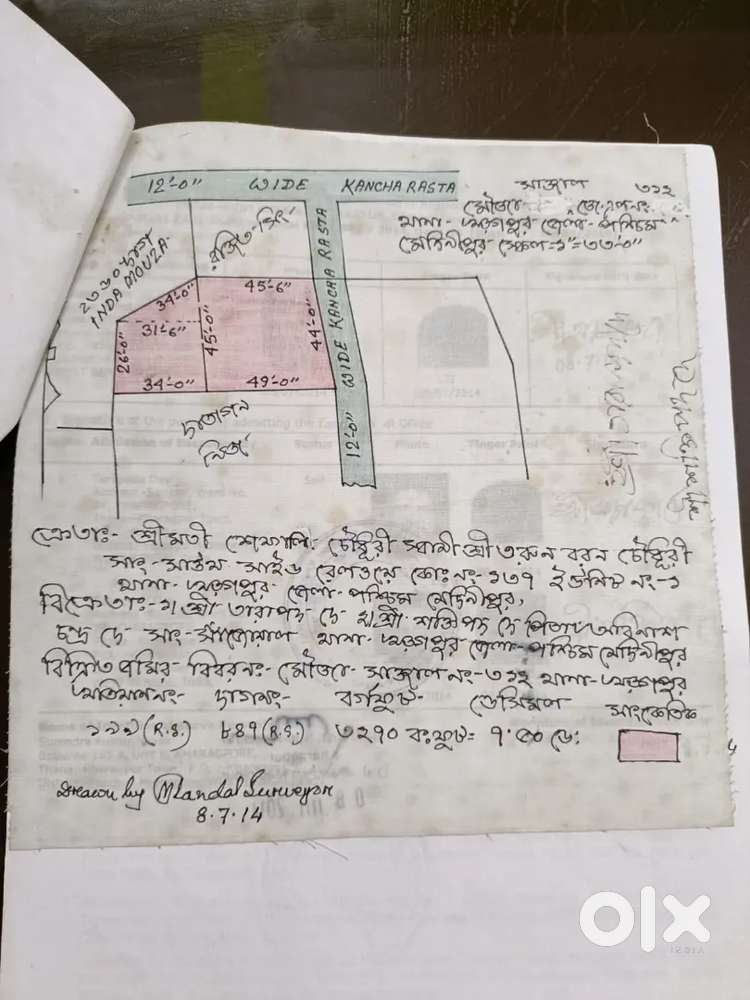 12'-0" WIDE KANCHA RASTA
সাজাল ৩১২
মৌজা- জে.এল.নং
থানা- খড়গপুর জেলা- পশ্চিম
মেদিনীপুর স্কেল=১"=৩৩'-০"
২৩৬০ দাগ
INDA MOUZA
রঞ্জিত সিং
12'-0" WIDE KANCHA RASTA
34'-0"
45'-6"
31'-6"
26'-0"
45'-0"
44'-0"
34'-0"
49'-0"
দাতাগন
নিজ
ক্রেতাঃ- শ্রীমতী শেফালি চৌধুরী স্বামী শ্রী তরুন বরন চৌধুরী
সাং- সাউথ সাইড রেলওয়ে কোঃ নং- ১৩৭ ইউনিট নং-১
থানা- খড়গপুর, জেলা- পশ্চিম মেদিনীপুর,
বিক্রেতাঃ- ১। শ্রী তারাপদ দে ২। শ্রী শক্তিপদ দে পিতা অবিনাশ
চন্দ্র দে সাং- থানা- খড়গপুর জেলা- পশ্চিম মেদিনীপুর
বিক্রিত জমির বিবরনঃ- মৌজা- সাজাল নং- ৩১২ থানা- খড়গপুর
খতিয়ান নং- দাগ নং- বর্গফুট- ডেসিমল সাংকেতিক
১৯১ (R.S.) ৮৪৭ (R.S.) ৩২৭০ বঃফুট= ৭.৫০ ডেঃ
Drawn by Mandal Surveyor
8.7.14
olx
INDIA